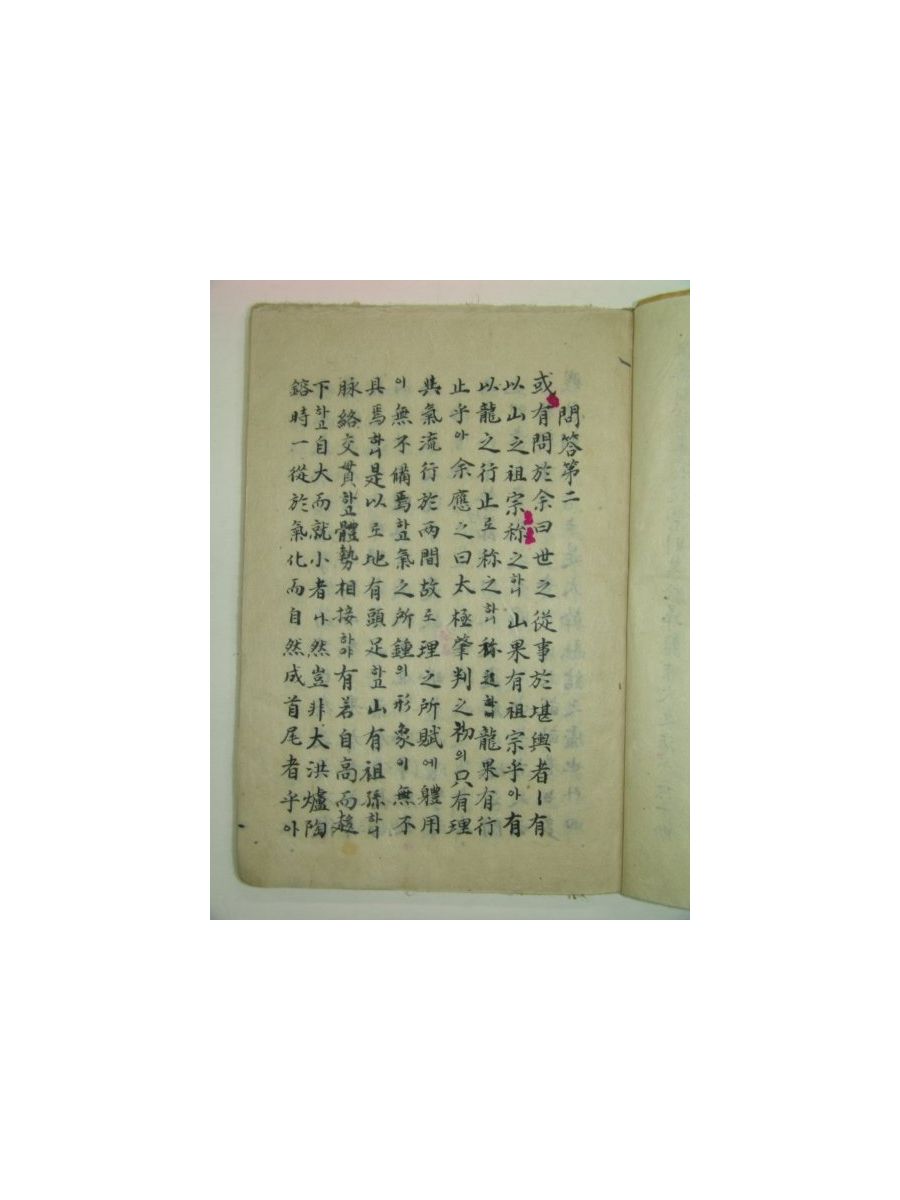 問答第二
或有問於余曰世之從事於堪輿者ㅣ有
以山之祖宗称之하니山果有祖宗乎아有
以龍之行止로称之하니称道하니龍果有行
止乎아余應之曰太極肇判之初의只有理
與氣流行於兩間故로理之所賦에軆用
이無不備焉하고氣之所鍾의形象이無不
具焉하니是以로地有頭足하고山有祖孫하니
脉絡交貫하고體勢相接하야有若自高而趍
下하고自大而就小者나然豈非大洪爐陶
鎔時一從於氣化而自然成首尾者乎아